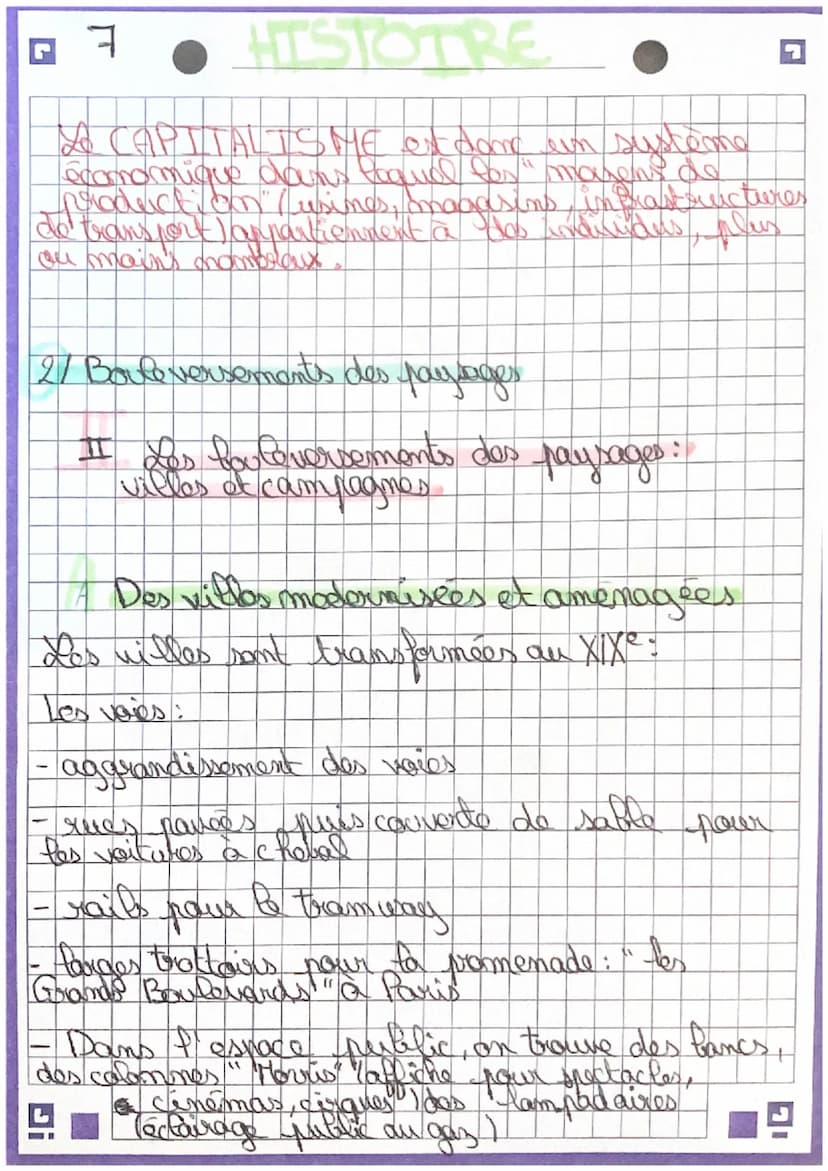 7 HISTOIRE
Le CAPITALISME est donc un système
économique dans lequel les "moyens de
production" (usines, magasins, infrastructures
de transport) appartiennent à des individus, plus
ou moins nombreux.
2/ Bouleversements des paysages
II Les bouleversements des paysages :
villes et campagnes
A Des villes modernisées et aménagées
Les villes sont transformées au XIXe :
Les voies :
- aggrandissement des voies
- rues pavées puis couverte de sable pour
les voitures à cheval
- rails pour le tramway
- larges trottoirs pour la promenade : "les
Grands Boulevards" à Paris
- Dans l'espace public, on trouve des bancs,
des colonnes "Morris" (affiche pour spectacles,
cinémas, cirques") des lampadaires
(éclairage public au gaz)